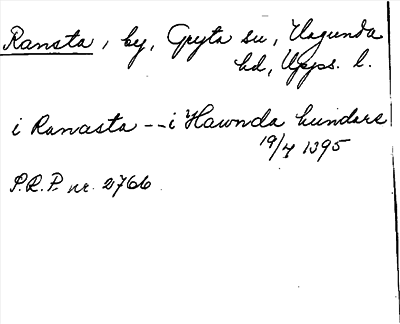 Ransta, by, Gryta sn, Hagunda
hd, Upps. l.
i Ranasta -- i Hawnda hundare
19/7 1395
P.R.P. nr. 2766.